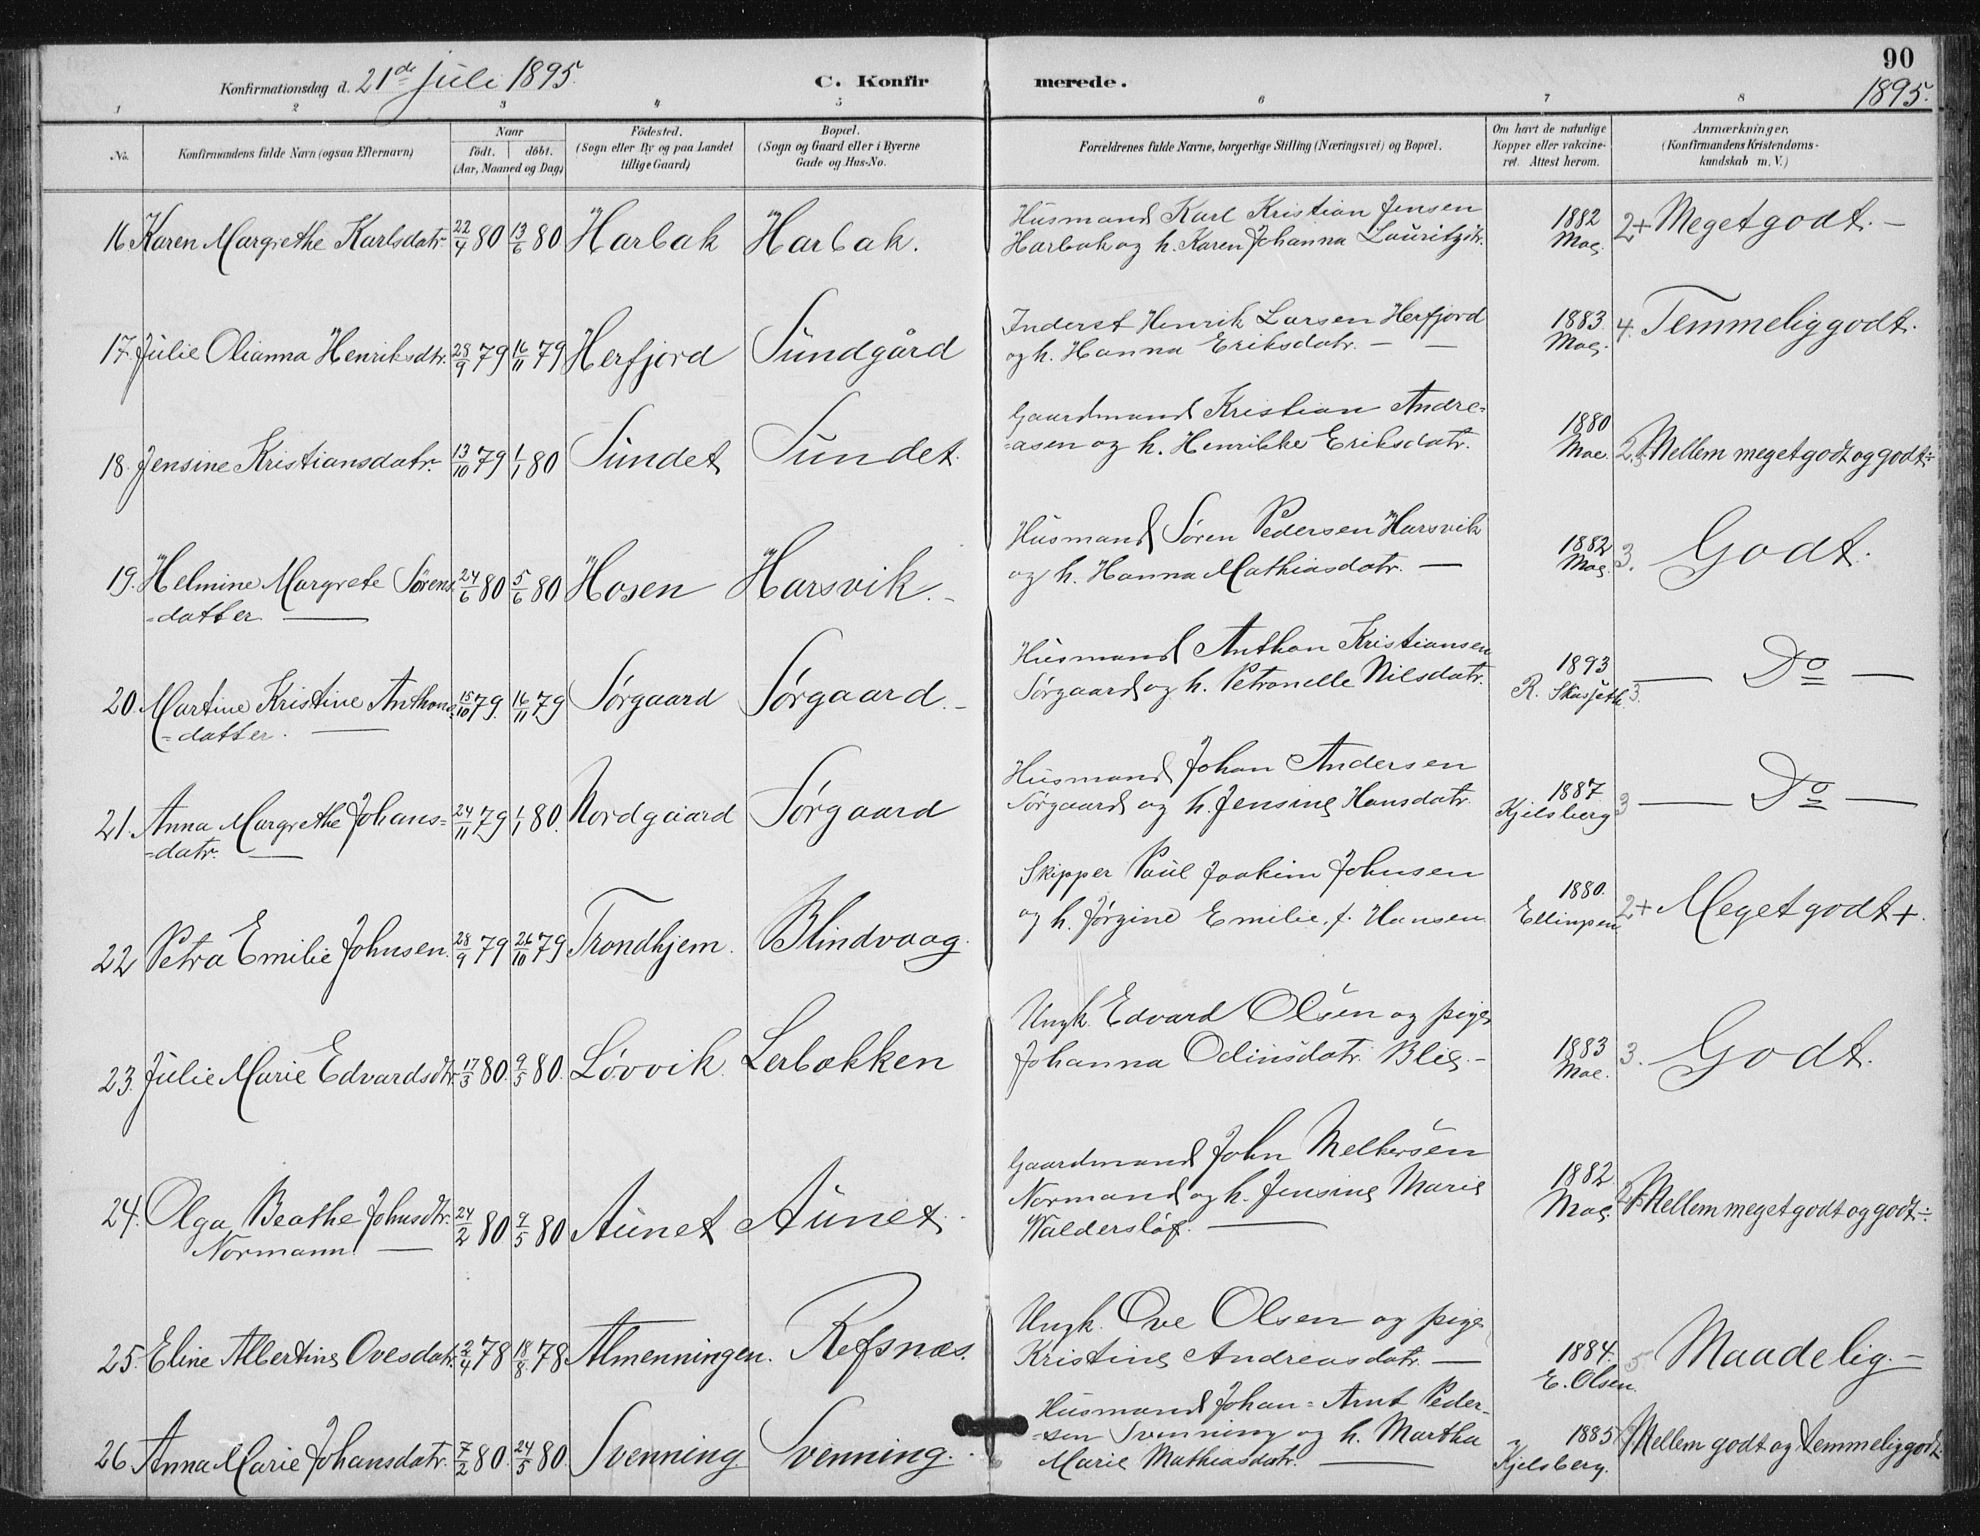 90
Konfirmationsdag d. 21de Juli 1895. C. Konfirmerede. 1895.
1 2 3 4 5 6 7 8
No. Konfirmandens fulde Navn (ogsaa Efternavn) Naar født. døbt. (Aar, Maaned og Dag) Födested. (Sogn eller By og paa Landet tillige Gaard) Bopæl. (Sogn og Gaard eller i Byerne Gade og Hus-No. Forældrenes fulde Navne, borgerlige Stilling (Næringsvei) og Bopæl. Om havt de naturlige Kopper eller vakcineret. Attest herom. Anmærkninger. (Konfirmandens Kristendomskundskab m. V.)
16 Karen Margrethe Karlsdatr. 22/4 80 13/6 80 Harbak Harbak. Husmand Karl Kristian Jensen 1882 2+ Meget godt. -
Harbak og h. Karen Johanna Lauritzdtr. Moe.
17. Julie Olianna Henriksdtr. 28/9 79 16/11 79 Herfjord Sundgård Inderst Henrik Larsen Herfjord 1883. 4. Temmelig godt.
og h. Hanna Eriksdatr. - - Moe.
18. Jensine Kristiansdatr. 13/10 79 1/1 80 Sundet Sundet. Gaardmand Kristian Andre- 1880 2,5 Mellem meget godt og godt ÷
-asen og h. Henrikke Eriksdatr. Moe.
19. Helmine Margrete Sørens- 24/6 80 5/6 80 Hosen Harsvik. - Husmand Søren Pedersen Harsvik 1882 3. Godt.
=datter. — og h. Hanna Mathiasdatr. — Moe.
20. Martine Kristine Anthons- 15/10 79. 16/11 79 Sørgaard Sørgaard. - Husmand Anthon Kristiansen 1893 3. — Do —
=datter. — Sørgaard og h. Petronelle Nilsdatr. R.
21. Anna Margrethe Johans= 24/11 79 1/1 80. Nordgaard Sørgaard Husmand Johan Andersen 1887 3 — Do —
=datr. — Sørgaard og h. Jensine Hansdatr. Kjelsberg
22 Petra Emilie Johnsen. 28/9 79 26/10 79 Trondhjem. Blindvaag. Skipper Paul Joakim Johnsen 1880. 2+ Meget godt +.
og h. Jørgine Emilie, f. Hansen Ellingsen
23. Julie Marie Edvardsdtr. 17/3 80. 9/5 80. Løvvik. Lerbækken Ungk. Edvard Olsen og pige 1883 3. Godt.
Johanna Odinsdatr. Blie. - Moe.
24. Olga Beathe Johnsdtr. 24/2 80 9/5 80 Aunet Aunet. Gaardmand John Melkersen 1882. Mellem meget godt og godt ÷
Normann. — Normand og h. Jensine Marie Moe
Waldersløf. —
25. Eline Albertine Ovesdatr. 2/4 78 18/8 78 Almenningen. Refsnæs. Ungk. Ove Olsen og pige 1884. 5 Maadelig. -
Kristine Andreasdatr. — E. Olsen.
26 Anna Marie Johansdatr. 7/2 80. 24/5 80. Svenning. Svenning. Husmand Johan=Arnt Peder- 1885 Mellem godt og temmelig godt
-sen Svenning og h. Martha Kjelsberg.
Marie Mathiasdatr. —